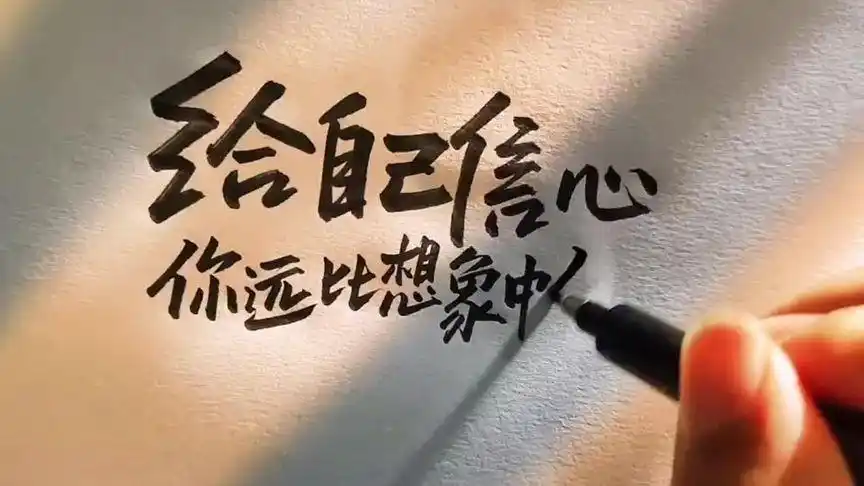 给自己信心
你远比想象中